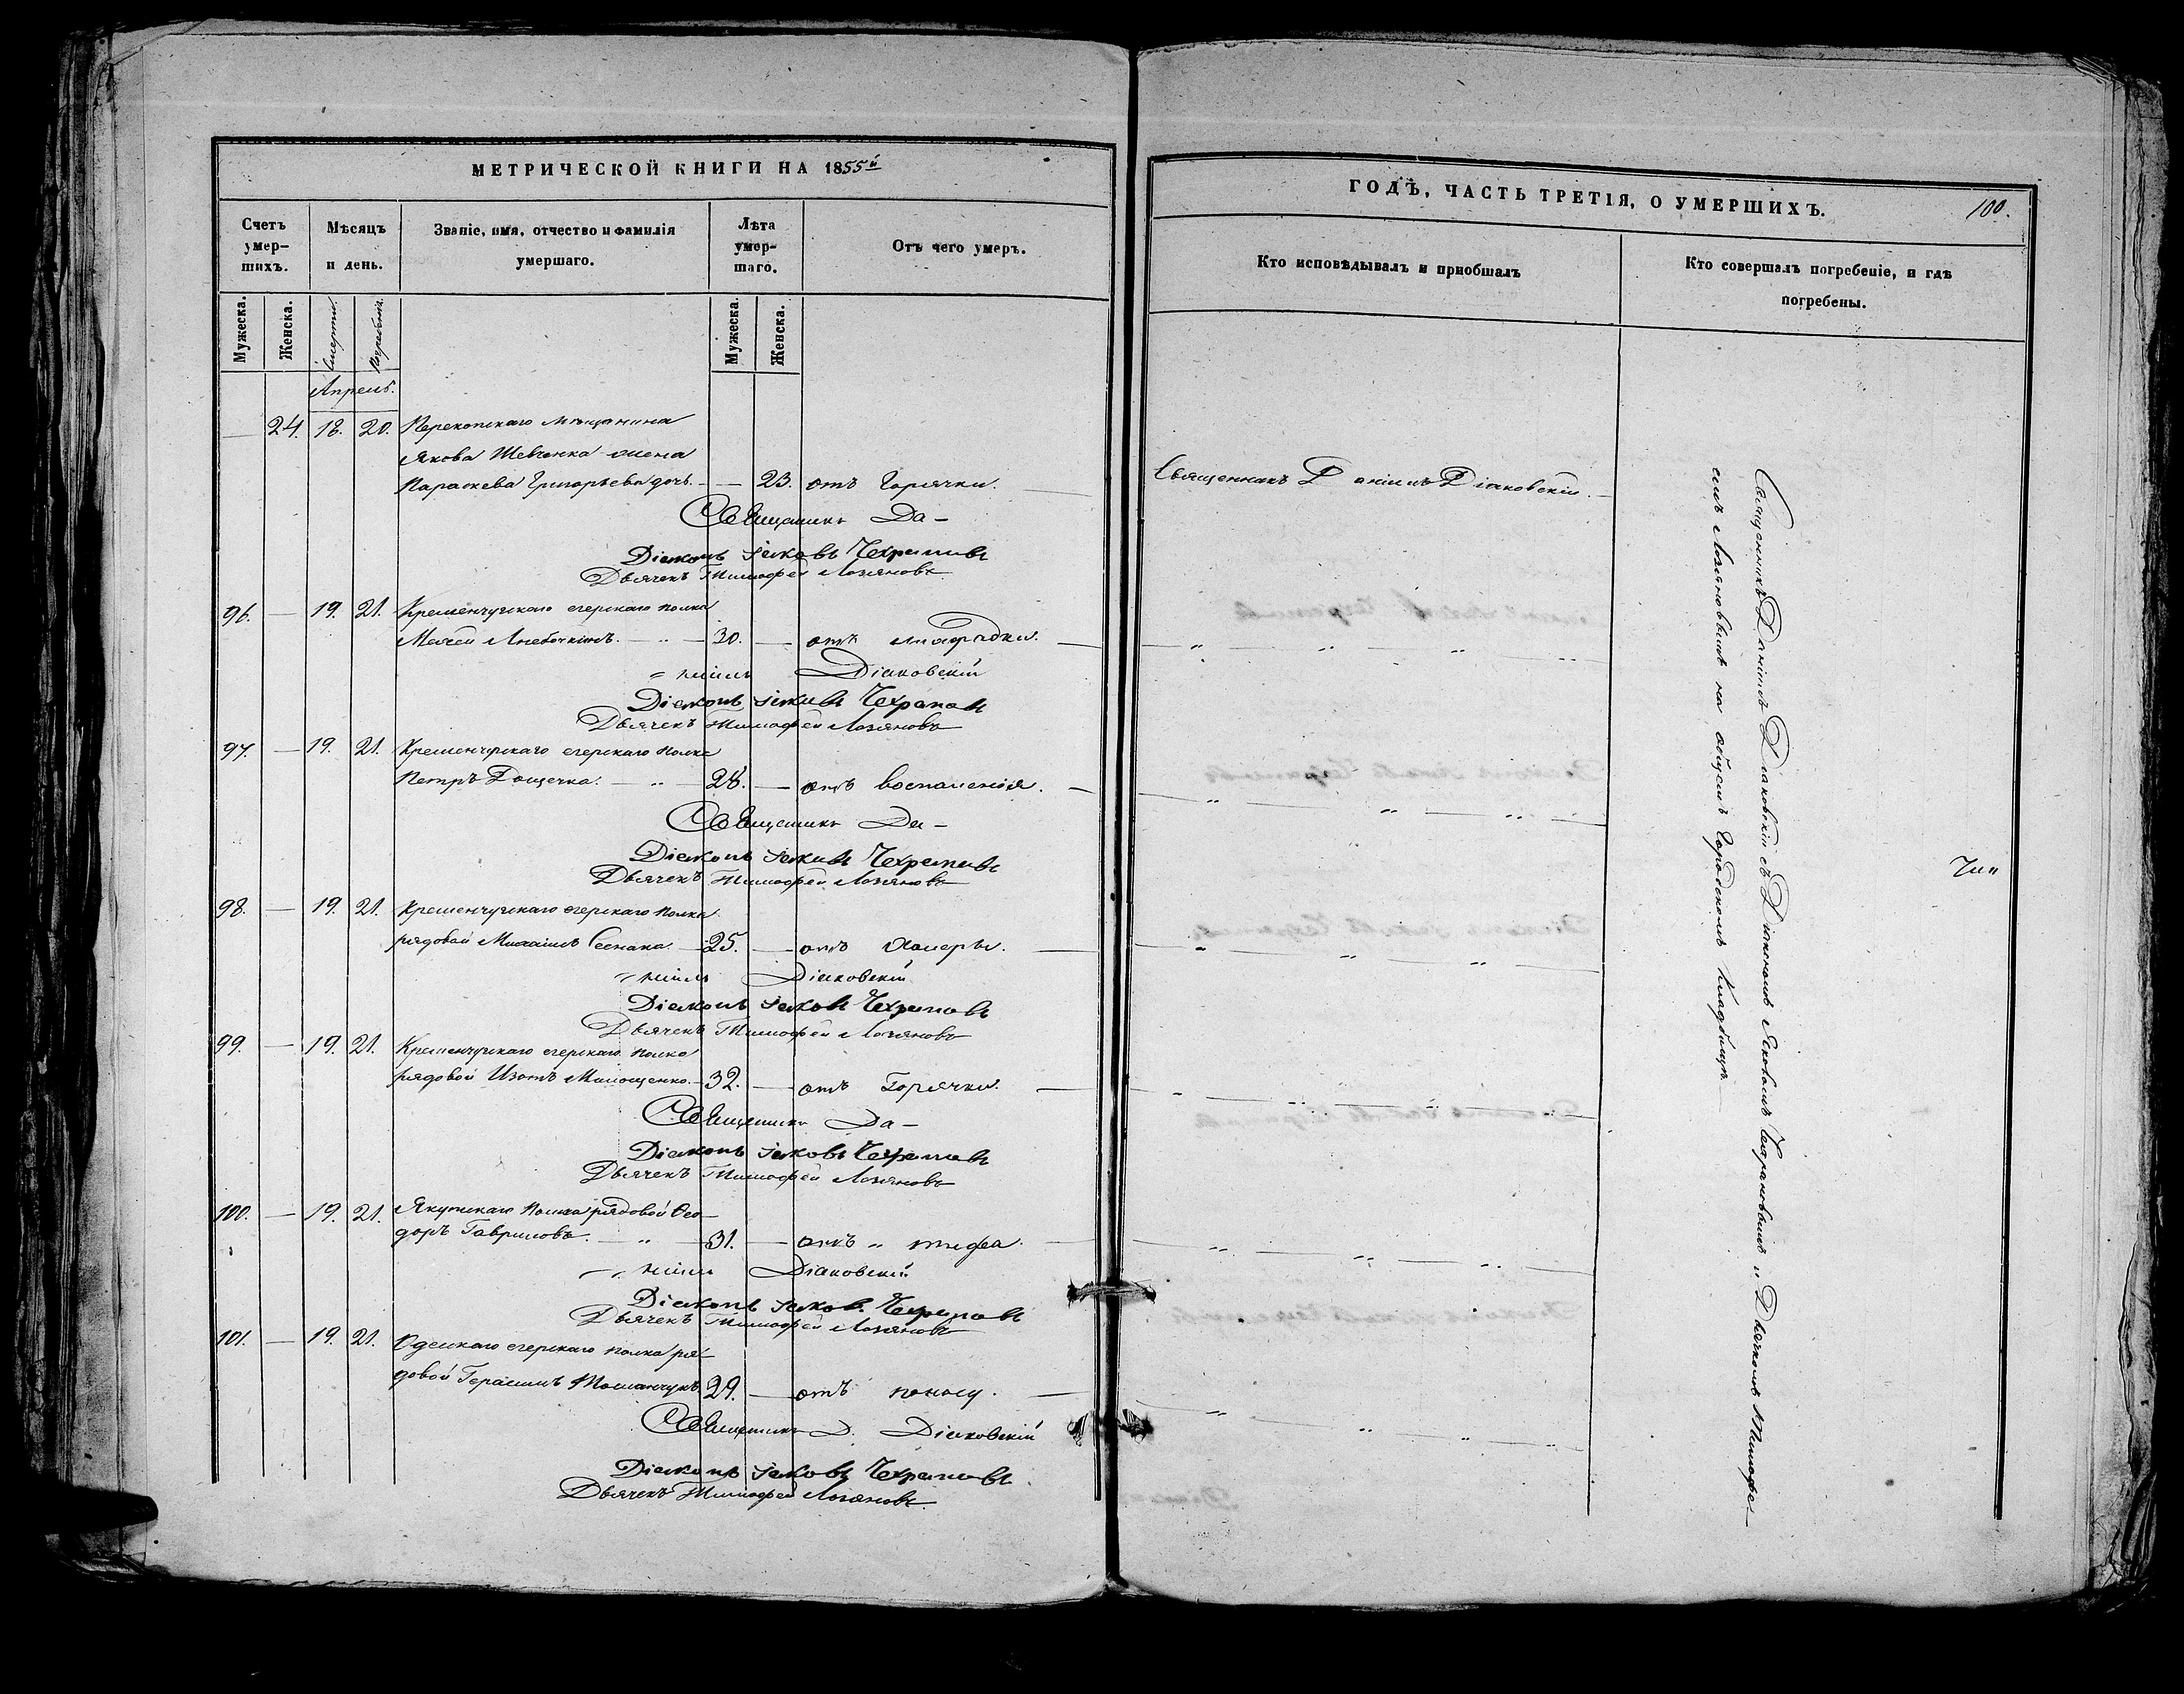 МЕТРИЧЕСКОЙ КНИГИ НА 1855й
Счетъ умер-шихъ.
Мѣсяцъ и день.
Званіе, имя, отчество и фамилія умершаго.
Лѣта умер-шаго.
Отъ чего умеръ.
Мужеска. Женска. Смерти. Погребенія. Мужеска. Женска.
Апрель.
— 24. 18. 20. Перекопскаго мѣщанина
Якова Шевченка жена
Параскева Григорьева дочь. — — 23. отъ Горячки. —
Священникъ Да-
Діаконъ Іаковъ Чехрановъ
Дьячекъ Тимофей Лозановъ
96. — 19. 21. Кременчугскаго егерскаго полка
30. — отъ лихорадки. —
ніилъ Діаковскій
Діаконъ Іаковъ Чехрановъ
Дьячекъ Тимофей Лозановъ
97. — 19. 21. Кременчугскаго егерскаго полка
Петръ Дощечка. — „ — 28. — отъ воспаленія. —
Священникъ Да-
Діаконъ Іаковъ Чехрановъ
Дьячекъ Тимофей Лозановъ
98. — 19. 21. Кременчугскаго егерскаго полка
рядовой Михаилъ — 25. — отъ Холеры. —
ніилъ Діаковскій
Діаконъ Іаковъ Чехрановъ
Дьячекъ Тимофей Лозановъ
99. — 19. 21. Кременчугскаго егерскаго полка
рядовой Изотъ — 32. — отъ Горячки. —
Священникъ Да-
Діаконъ Іаковъ Чехрановъ
Дьячекъ Тимофей Лозановъ
100. — 19. 21. Якутскаго полка рядовой Ѳео-
доръ Гавриловъ. — „ — 31. — отъ „ тифа. —
ніилъ Діаковскій
Діаконъ Іаковъ Чехрановъ
Дьячекъ Тимофей Лозановъ
101. — 19. 21. Одескаго егерскаго полка ря-
довой Герасимъ 29. — отъ поносу. —
Священникъ Д. Діаковскій
Діаконъ Іаковъ Чехрановъ
Дьячекъ Тимофей Лозановъ.
ГОДЪ, ЧАСТЬ ТРЕТІЯ, О УМЕРШИХЪ.
100.
Кто исповѣдывалъ и пріобщалъ
Кто совершалъ погребеніе, и гдѣ погребены.
Священникъ Даніилъ Діаковскій. —
Священникъ Даніилъ Діаковскій съ Діакономъ Яковомъ Чехрановымъ и Дьячкомъ Тимофе-
емъ Лозановымъ на общемъ Городскомъ Кладбищѣ. —